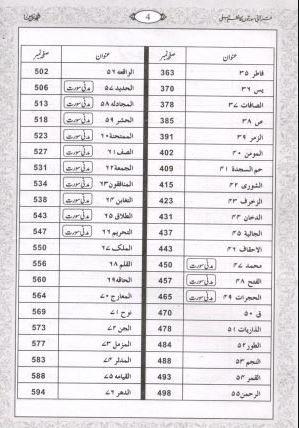 4
صفحہ نمبر عنوان
فاطر ۳۵ 363
یس ۳۶ 370
الصافات ۳۷ 378
ص ۳۸ 385
الزمر ۳۹ 391
المومن ۴۰ 402
حم السجدۃ ۴۱ 409
الشوری ۴۲ 415
الزخرف ۴۳ 423
الدخان ۴۴ 431
الجاثیۃ ۴۵ 437
الاحقاف ۴۶ 443
محمد ۴۷ مدنی سورت 450
الفتح ۴۸ مدنی سورت 457
الحجرات ۴۹ مدنی سورت 465
ق ۵۰ 470
الذاریات ۵۱ 478
الطور ۵۲ 484
النجم ۵۳ 488
القمر ۵۴ 493
الرحمن ۵۵ 498
صفحہ نمبر عنوان
الواقعہ ۵۶ 502
الحدید ۵۷ مدنی سورت 506
المجادلہ ۵۸ مدنی سورت 513
الحشر ۵۹ مدنی سورت 518
الممتحنۃ ۶۰ مدنی سورت 523
الصف ۶۱ مدنی سورت 527
الجمعۃ ۶۲ مدنی سورت 531
المنافقون ۶۳ مدنی سورت 534
التغابن ۶۴ مدنی سورت 538
الطلاق ۶۵ مدنی سورت 543
التحریم ۶۶ مدنی سورت 547
الملک ۶۷ 550
القلم ۶۸ 556
الحاقہ ۶۹ 560
المعارج ۷۰ 564
نوح ۷۱ 569
الجن ۷۲ 573
المزمل ۷۳ 577
المدثر ۷۴ 583
القیامہ ۷۵ 588
الدھر ۷۶ 594